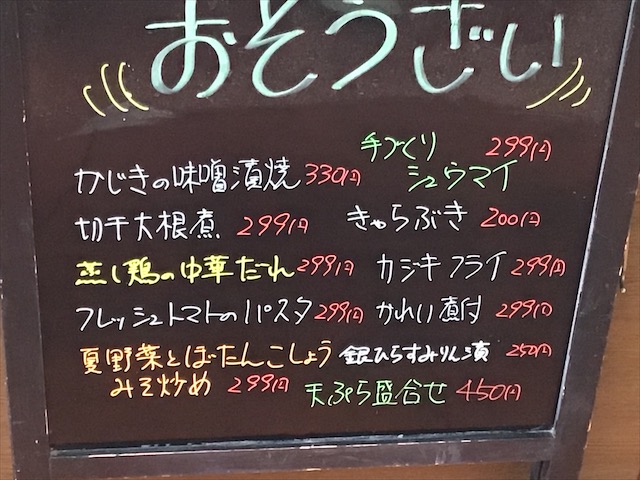 おそうざい
手づくり 299円
シュウマイ
かじきの味噌漬焼 330円
切干大根煮 299円
きゃらぶき 200円
蒸し鶏の中華だれ 299円
カジキフライ 299円
フレッシュトマトのパスタ 299円
かれい煮付 299円
夏野菜とぼたんこしょう
みそ炒め 299円
銀ひらすみりん漬 250円
天ぷら盛合せ 450円